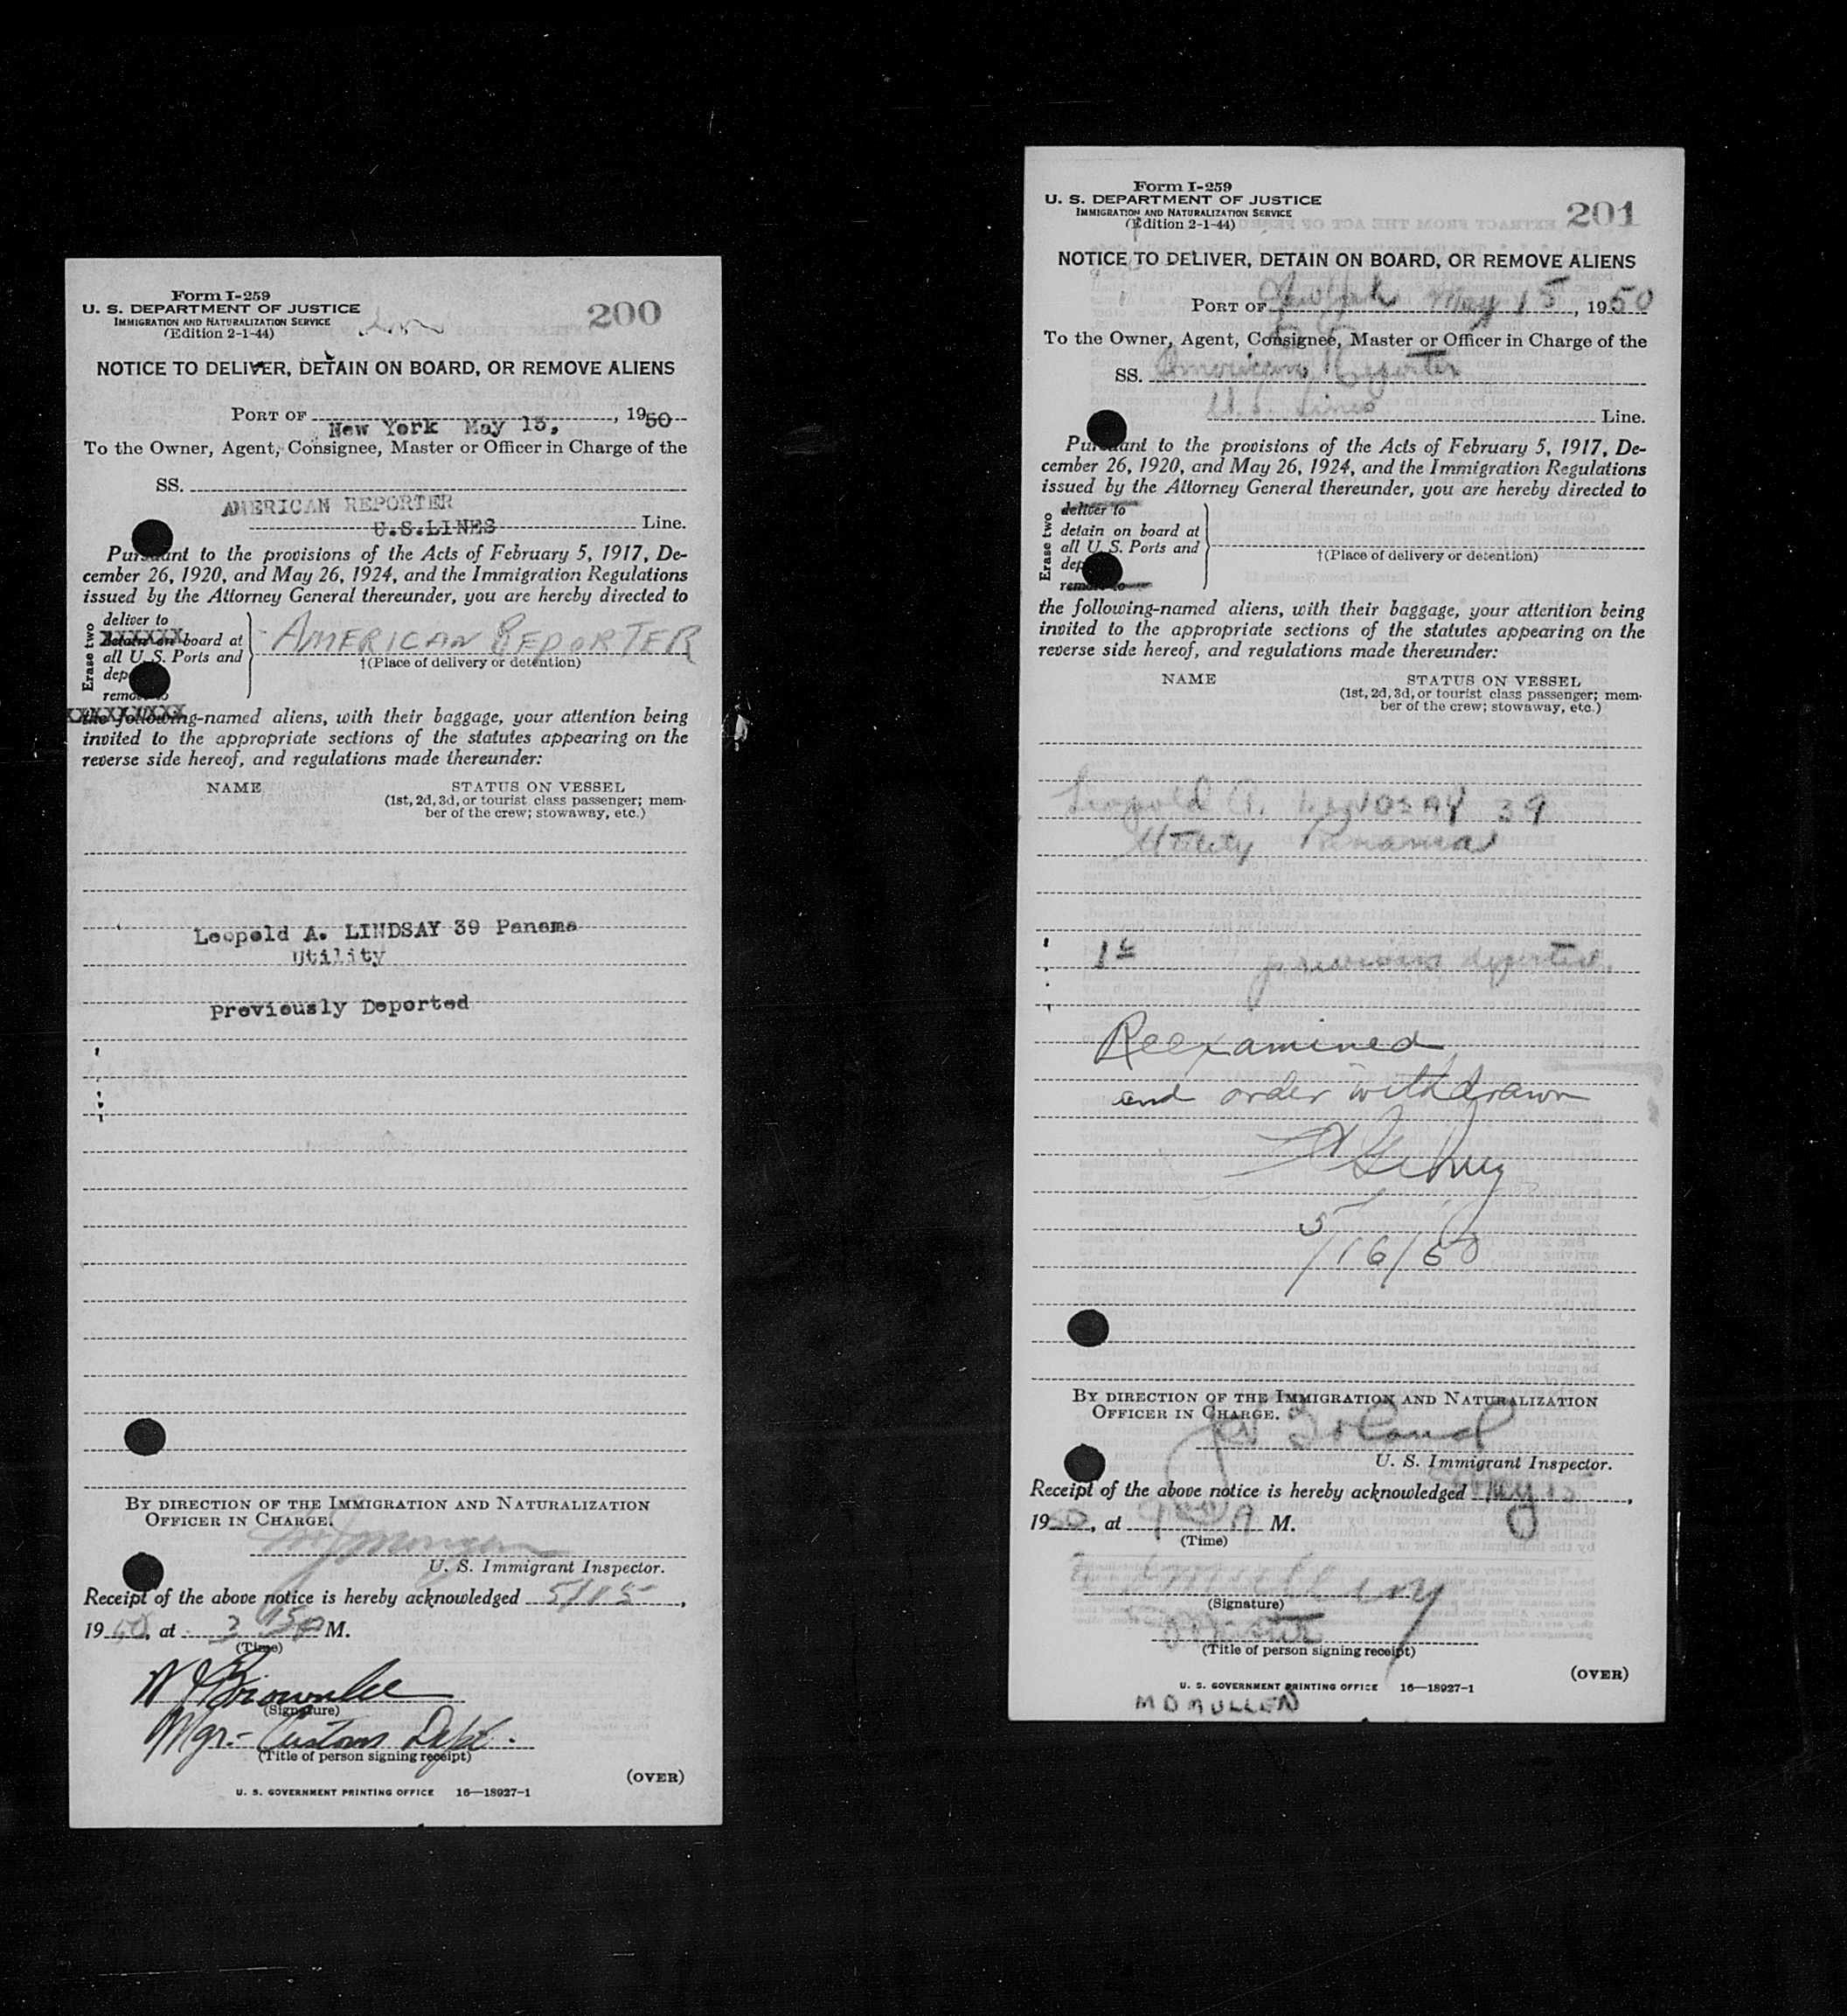 Form I-259
U. S. DEPARTMENT OF JUSTICE
IMMIGRATION AND NATURALIZATION SERVICE
(Edition 2-1-44)
200
NOTICE TO DELIVER, DETAIN ON BOARD, OR REMOVE ALIENS
PORT OF New York May 15, 1950
To the Owner, Agent, Consignee, Master or Officer in Charge of the
SS.
AMERICAN REPORTER
U.S.LINES Line.
Pursuant to the provisions of the Acts of February 5, 1917, De-
cember 26, 1920, and May 26, 1924, and the Immigration Regulations
issued by the Attorney General thereunder, you are hereby directed to
Erase two
deliver to
detain on board at
all U. S. Ports and
dep
remove to
AMERICAN REPORTER
†(Place of delivery or detention)
the following-named aliens, with their baggage, your attention being
invited to the appropriate sections of the statutes appearing on the
reverse side hereof, and regulations made thereunder:
NAME STATUS ON VESSEL
(1st, 2d, 3d, or tourist class passenger; mem-
ber of the crew; stowaway, etc.)
Leopold A. LINDSAY 39 Panama
Utility
Previously Deported
BY DIRECTION OF THE IMMIGRATION AND NATURALIZATION
OFFICER IN CHARGE.
U. S. Immigrant Inspector.
Receipt of the above notice is hereby acknowledged 5/15,
1950, at 3 50P M.
(Time)
W J Brownlee
(Signature)
Mgr.- Customs Dept.
(Title of person signing receipt)
(OVER)
U. S. GOVERNMENT PRINTING OFFICE 16—18927-1
Form I-259
U. S. DEPARTMENT OF JUSTICE
IMMIGRATION AND NATURALIZATION SERVICE
(Edition 2-1-44)
201
NOTICE TO DELIVER, DETAIN ON BOARD, OR REMOVE ALIENS
PORT OF New York May 15, 1950
To the Owner, Agent, Consignee, Master or Officer in Charge of the
SS. American Reporter
U.S. Lines Line.
Pursuant to the provisions of the Acts of February 5, 1917, De-
cember 26, 1920, and May 26, 1924, and the Immigration Regulations
issued by the Attorney General thereunder, you are hereby directed to
Erase two
deliver to
detain on board at
all U. S. Ports and
dep
remove to
†(Place of delivery or detention)
the following-named aliens, with their baggage, your attention being
invited to the appropriate sections of the statutes appearing on the
reverse side hereof, and regulations made thereunder:
NAME STATUS ON VESSEL
(1st, 2d, 3d, or tourist class passenger; mem-
ber of the crew; stowaway, etc.)
Leopold A. LINDSAY 39
Utility Panama
previously deported.
Reexamined
and order withdrawn
5/16/50
BY DIRECTION OF THE IMMIGRATION AND NATURALIZATION
OFFICER IN CHARGE.
U. S. Immigrant Inspector.
Receipt of the above notice is hereby acknowledged May 15,
1950, at A M.
(Time)
(Signature)
(Title of person signing receipt)
(OVER)
U. S. GOVERNMENT PRINTING OFFICE 16—18927-1
M D MULLEN